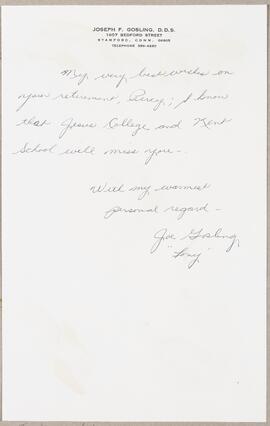 JOSEPH F. GOSLING, D.D.S.
1407 BEDFORD STREET
STAMFORD, CONN. 06905
TELEPHONE
My very best wishes on
your retirement, Percy; I know
that Jesus College and Kent
School will miss you -
With my warmest
personal regard -
Joe Gosling
"Tony"